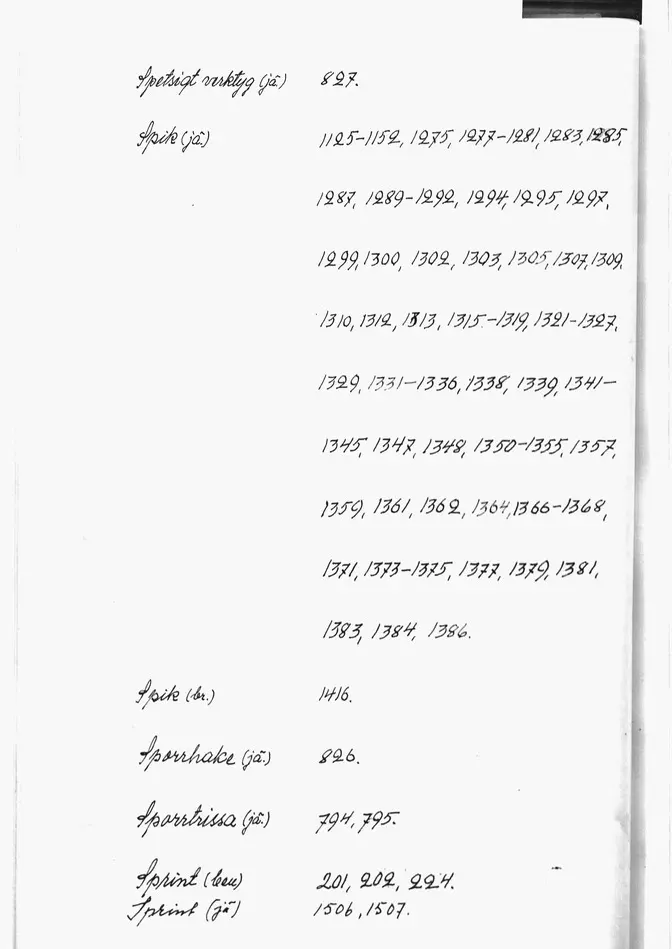 Spetsigt verktyg (jä.) 827.
Spik (jä.) 1125-1152, 1275, 1277-1281, 1283, 1285,
1287, 1289-1292, 1294, 1295, 1297,
1299, 1300, 1302, 1303, 1305, 1307, 1309,
1310, 1312, 1313, 1315-1319, 1321-1327,
1329, 1331-1336, 1338, 1339, 1341-
1345, 1347, 1348, 1350-1355, 1357,
1359, 1361, 1362, 1364, 1366-1368,
1371, 1373-1375, 1377, 1379, 1381,
1383, 1384, 1386.
Spik (br.) 1416.
Sporrhake (jä.) 826.
Sporrtrissa (jä.) 794, 795.
Sprint (ben) 201, 202, 224.
Sprint (jä) 1506, 1507.